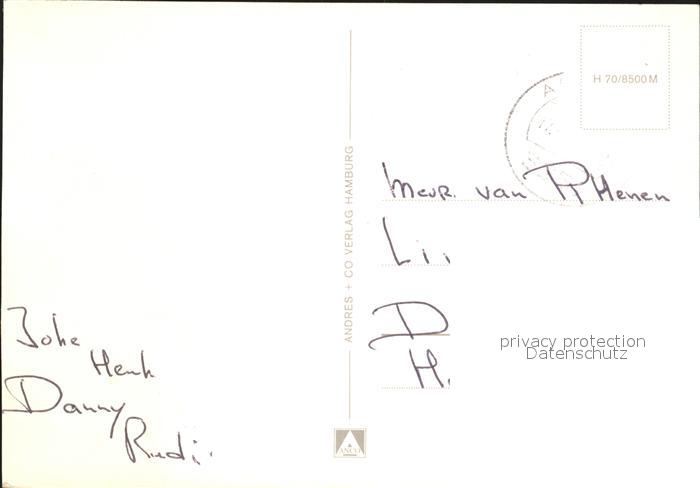 H 70/8500 M
Mevr. van
Li
D
H.
ANDRES + CO VERLAG HAMBURG
privacy protection
Datenschutz
Joke
Henk
Danny
Rudi.
ANCO